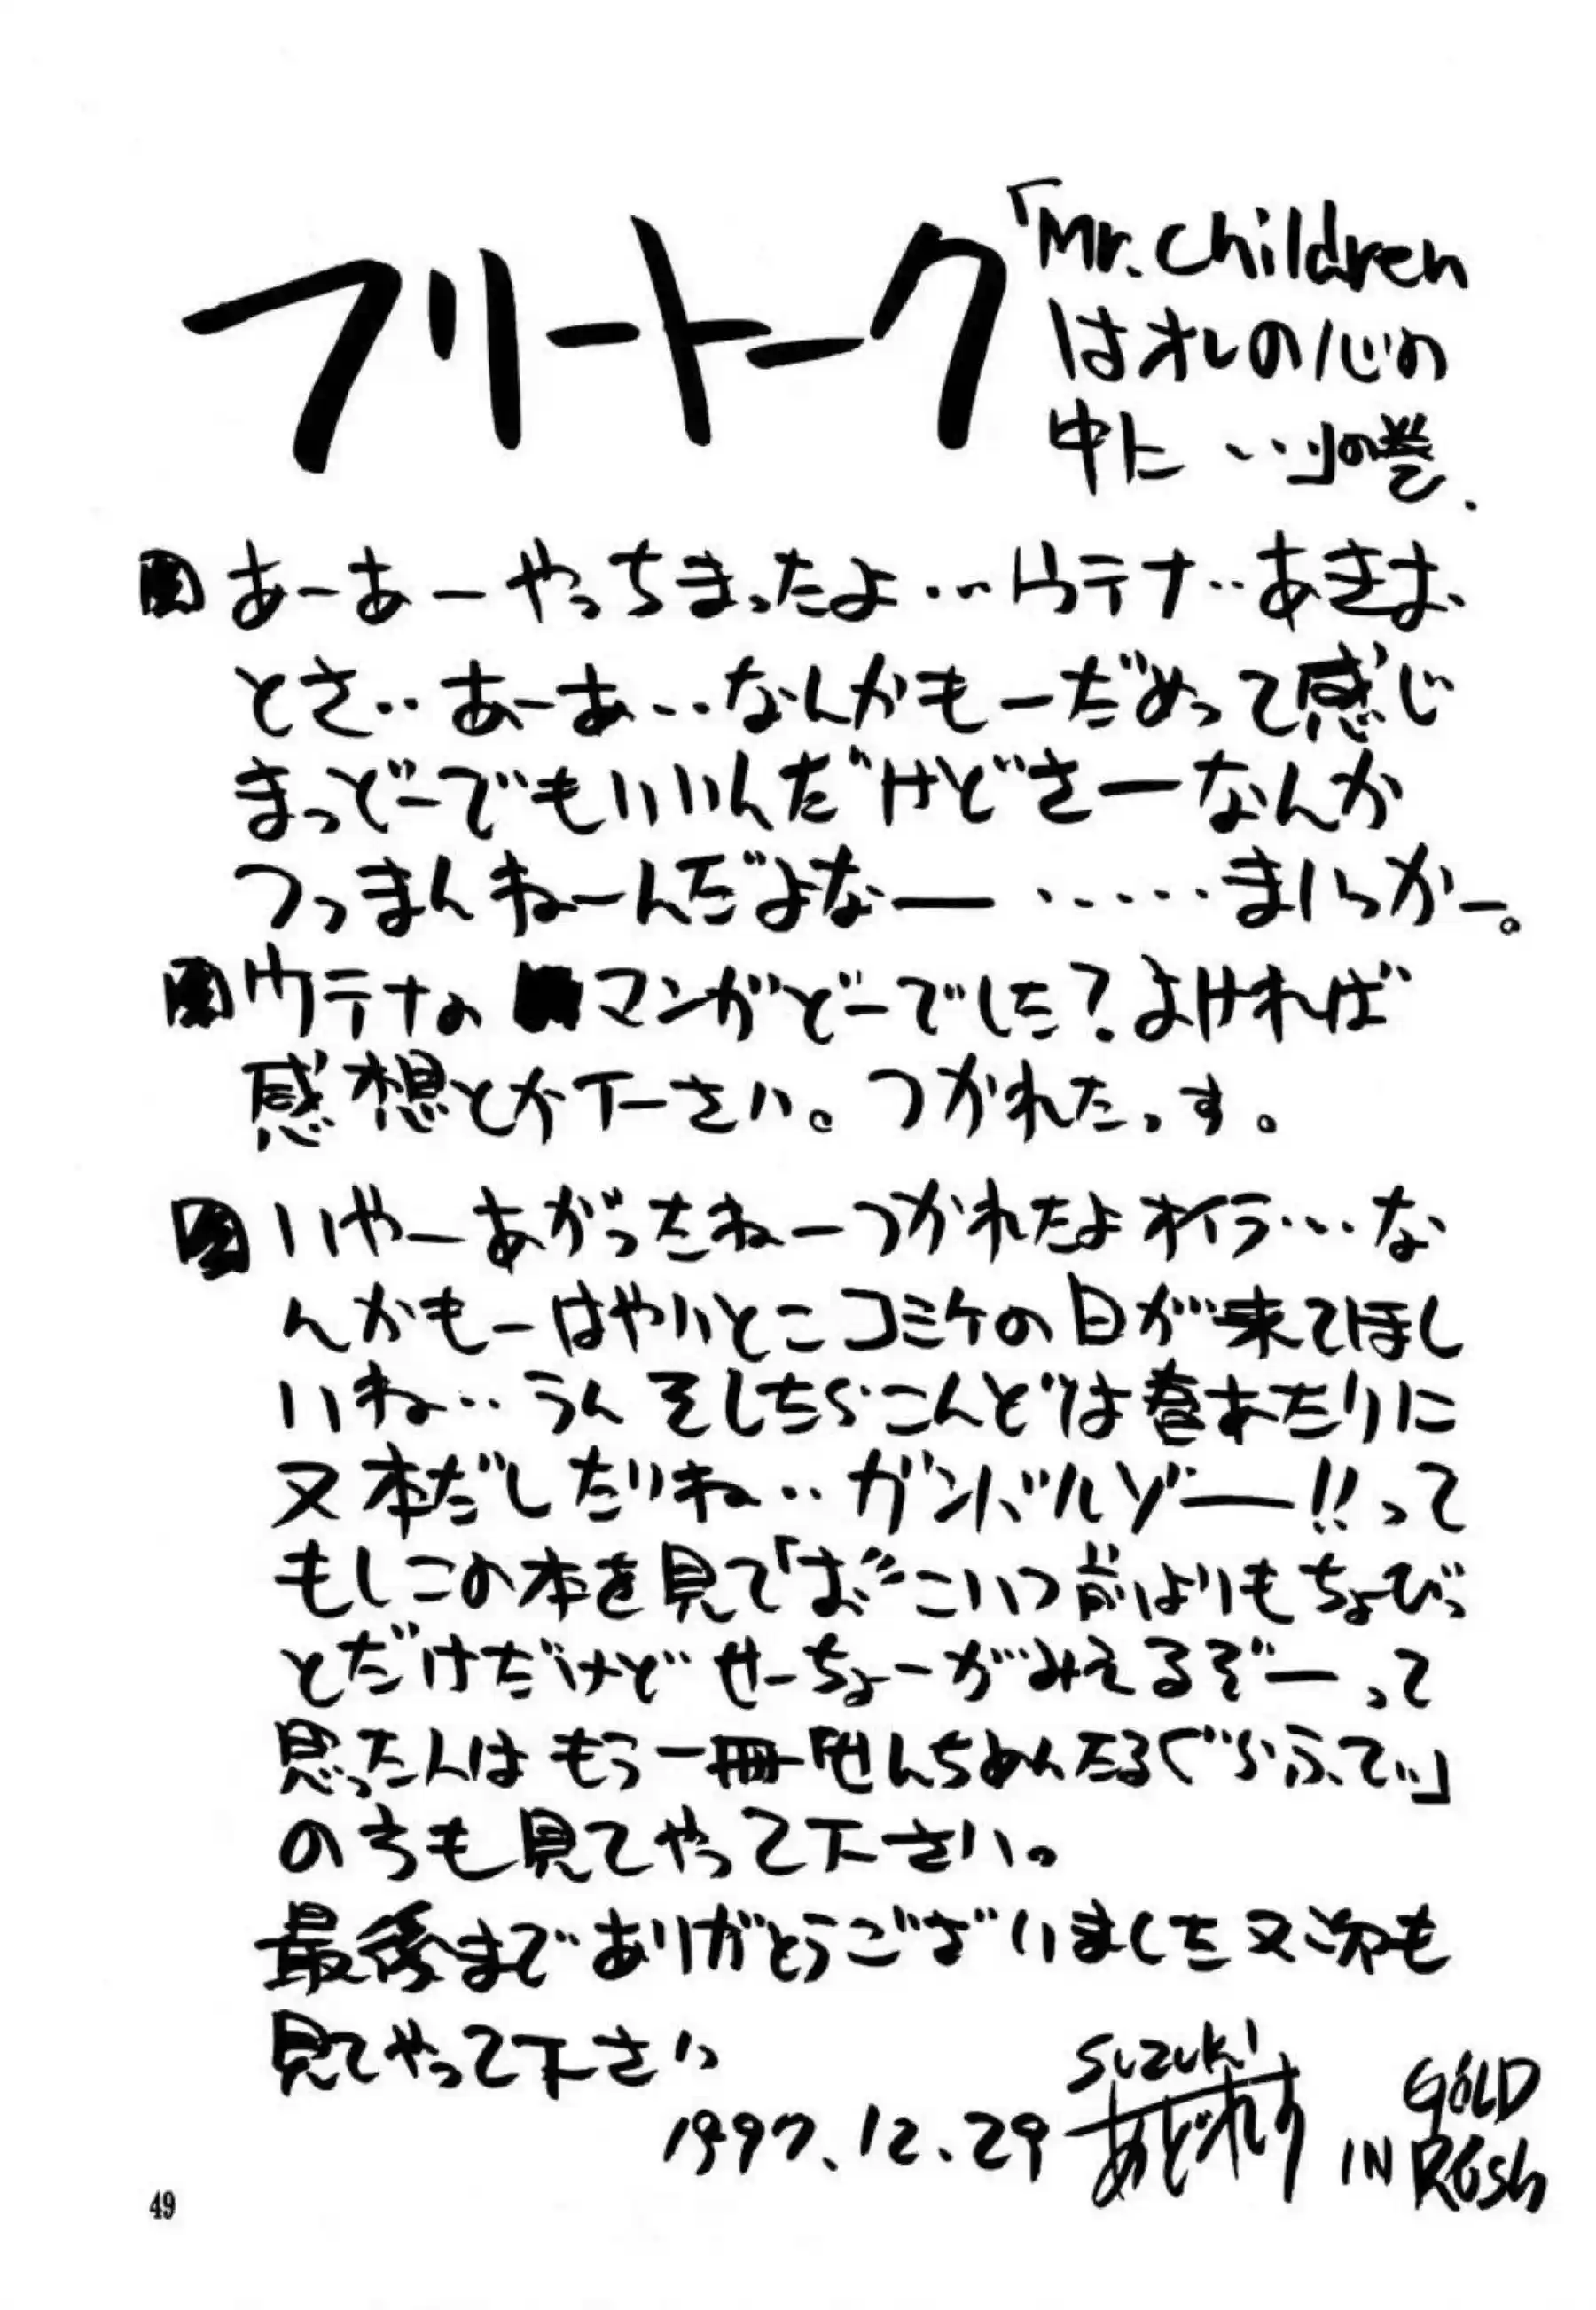 フリートーク
「Mr.Children
はオレの心の
中に・・・」の巻.
あーあーやっちまったよ・・・ウテナ・・あきお、
とさ・・あーあ・・・なんかもーだめって感じ
まっどーでもいいんだけどさーなんか
つっまんねーんだよなー・・・・・・まいっかー。
ウテナの マンガどーでした?よければ
感想とか下ーさい。つかれたっす。
いやーあがったねーつかれたよオイラ・・・な
んかもーはやいとこコミケの日が来てほし
いね・・うんそしたらこんどは春あたりに
又本だしたりね・・ガンバルゾー!!って
もしこの本を見て「おっこいつ前よりもちょびっ
とだけだけどせーちょーがみえるぞーって
思った人はもう一冊「せんちめんたるぐらふてぃ」
のうも見てやって下さい。
最後までありがとうございました又次も
見てやって下さい
1997.12.29
SUZUKI
あどれす
GOLD
IN RUSH
49